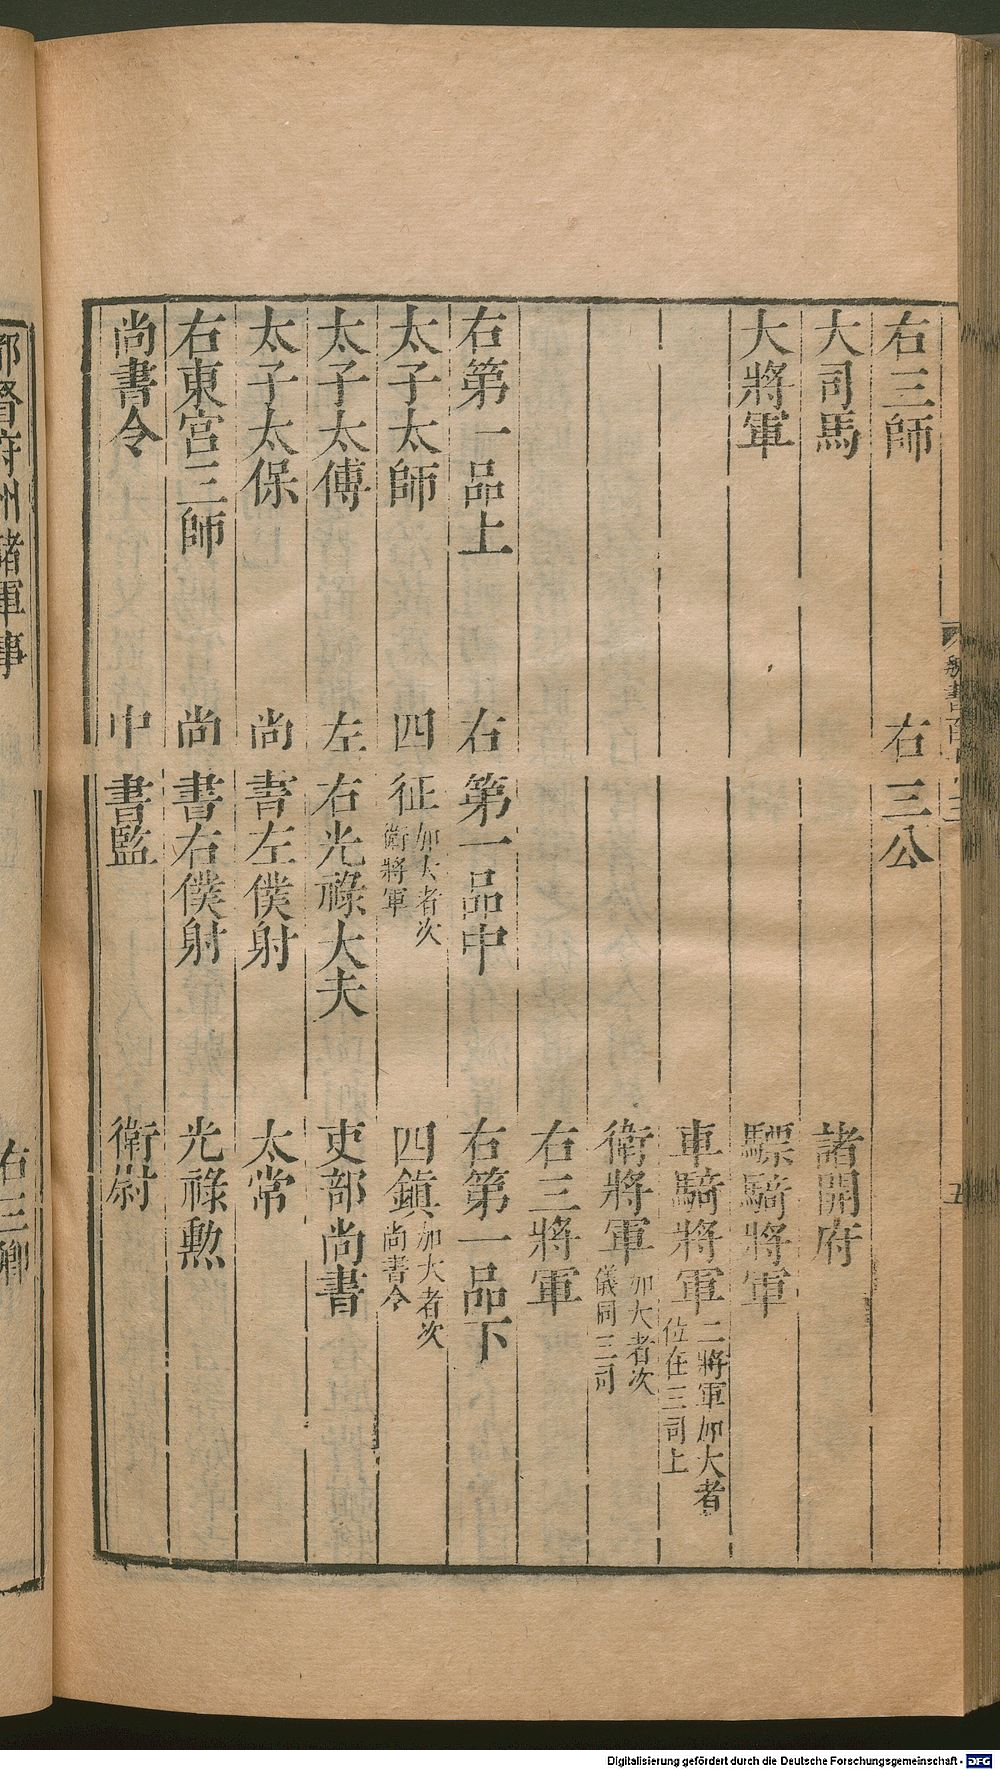 右三師 右三公
大司馬 諸開府
大將軍 驃騎將軍
車騎將軍 二將軍加大者位在三司上
衛將軍 加大者次儀同三司
右三將軍
右第一品上 右第一品中 右第一品下
太子太師 四征 加大者次衛將軍 四鎮 加大者次尚書令
太子太傅 左右光祿大夫 吏部尚書
太子太保 尚書左僕射 太常
右東宮三師 尚書右僕射 光祿勲
尚書令 中書監 衛尉
都督府州諸軍事 右三卿
五
Digitalisierung gefördert durch die Deutsche Forschungsgemeinschaft - DFG